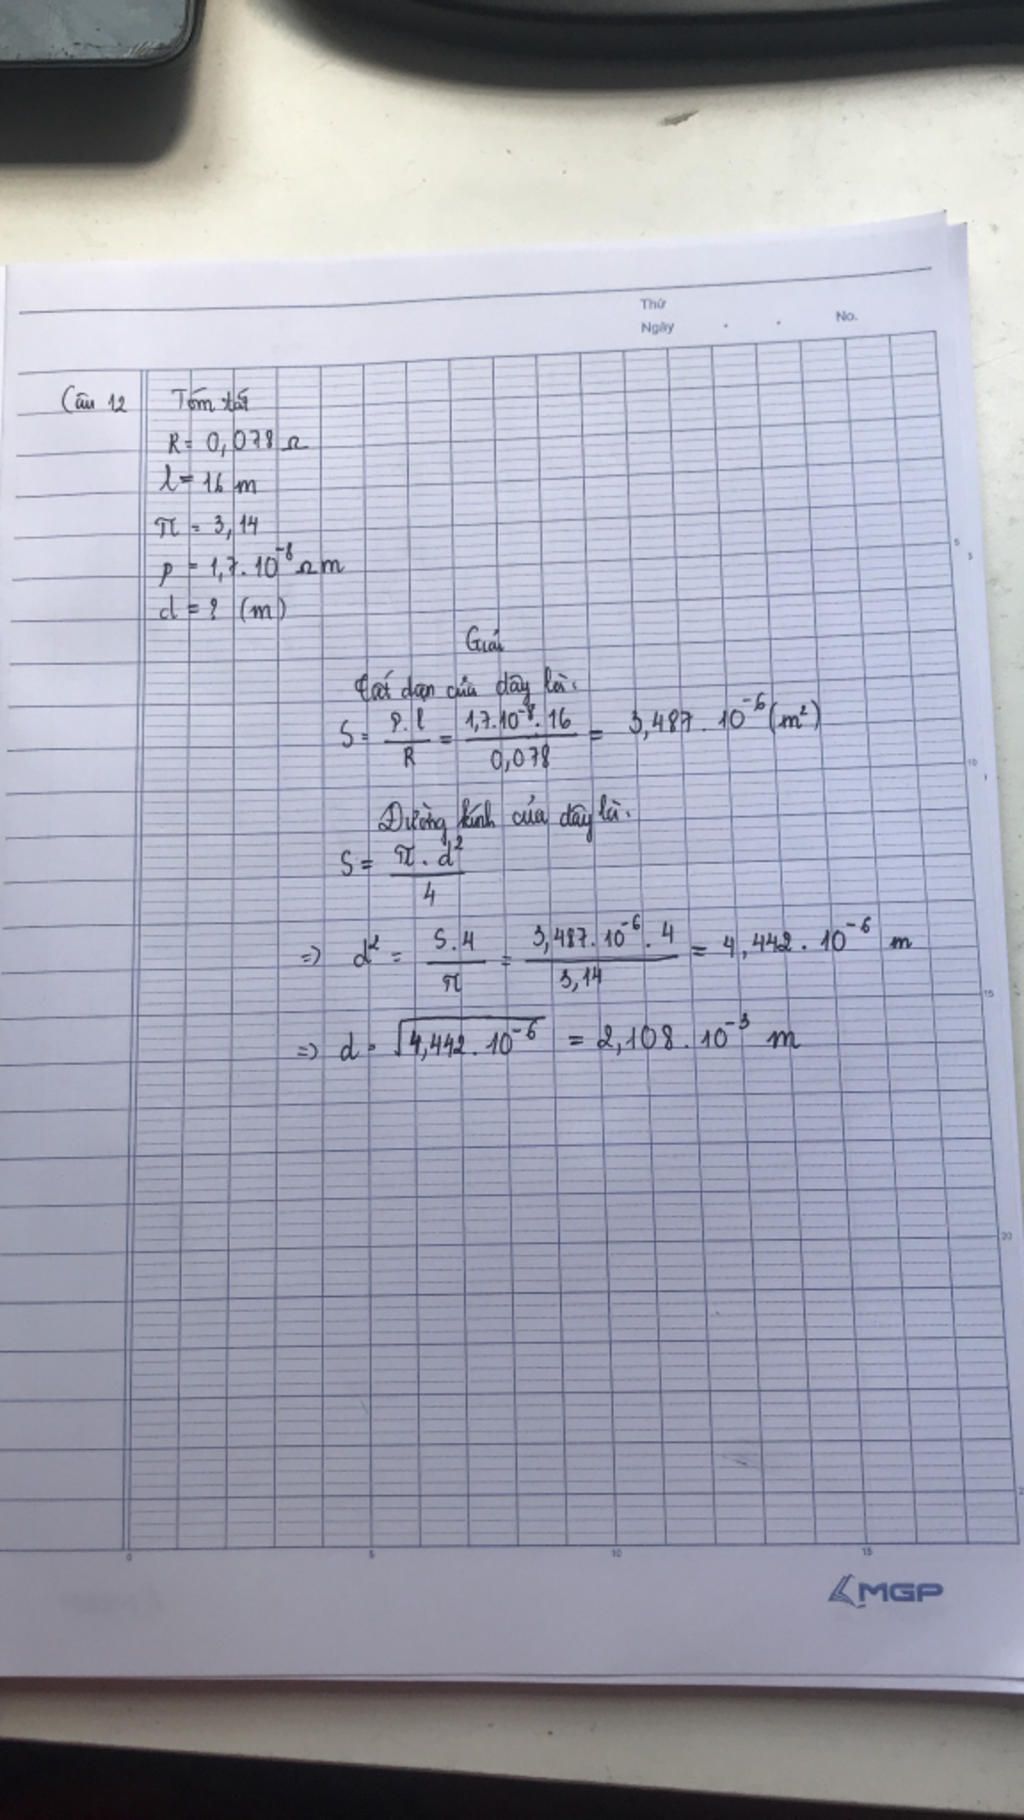 Thứ
Ngày . . No.
Câu 12 Tóm tắt
R = 0,078 Ω
l = 16 m
π = 3,14
ρ = 1,7.10⁻⁸ Ωm
d = ? (m)
Giải
của dây là:
S = ρ.l / R = 1,7.10⁻⁸.16 / 0,078 = 3,487.10⁻⁶ (m²)
Đường kính của dây là:
S = π.d² / 4
=> d² = S.4 / π = 3,487.10⁻⁶.4 / 3,14 = 4,442.10⁻⁶ m
=> d = √4,442.10⁻⁶ = 2,108.10⁻³ m
5
10
15
20
0 5 10 15
MGP